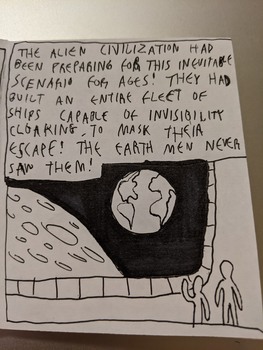 THE ALIEN CIVILIZATION HAD
BEEN PREPARING FOR THIS INEVITABLE
SCENARIO FOR AGES! THEY HAD
BUILT AN ENTIRE FLEET OF
SHIPS CAPABLE OF INVISIBILITY
CLOAKING. TO MASK THEIR
ESCAPE! THE EARTH MEN NEVER
SAW THEM!